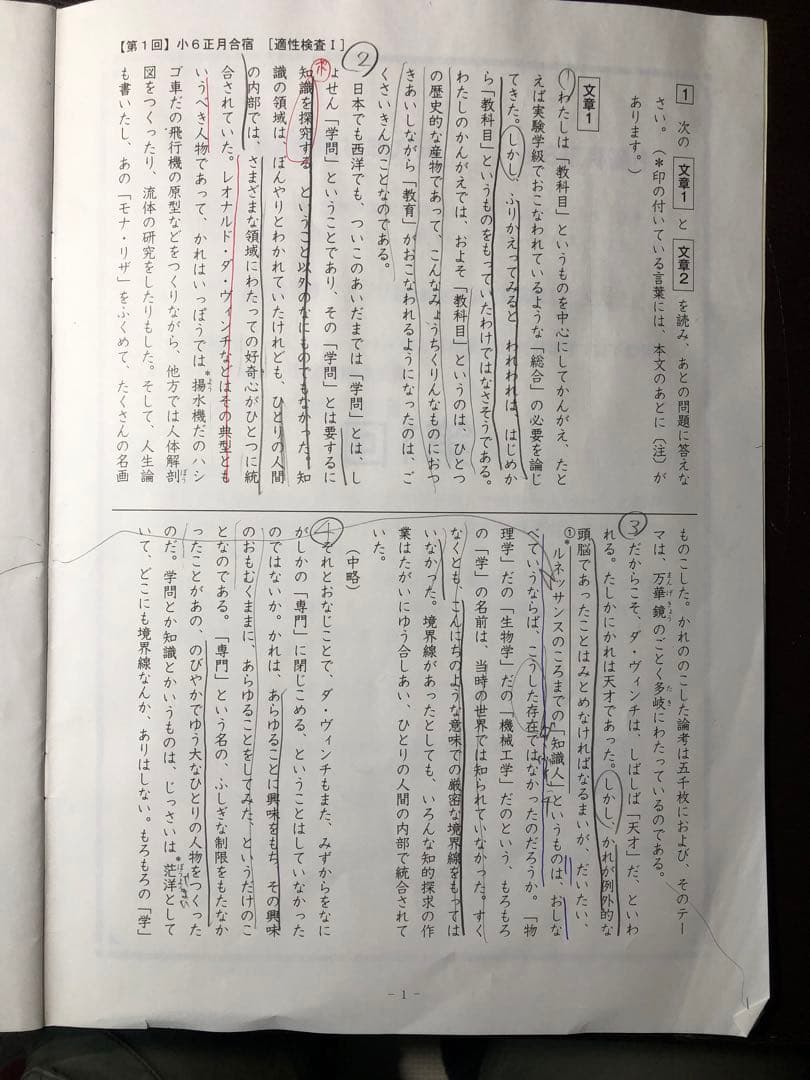 【第１回】小６正月合宿　［適性検査Ⅰ］
1　次の 文章１ と 文章２ を読み、あとの問題に答えな
さい。（＊印の付いている言葉には、本文のあとに〔注〕が
あります。）
文章１
①わたしは「教科目」というものを中心にしてかんがえ、たと
えば実験学級でおこなわれているような「総合」の必要を論じ
てきた。しかし、ふりかえってみると、われわれは、はじめか
ら「教科目」というものをもっていたわけではなさそうである。
わたしのかんがえでは、およそ「教科目」というのは、ひとつ
の歴史的な産物であって、こんなみょうちくりんなものにおつ
きあいしながら「教育」がおこなわれるようになったのは、ご
くさいきんのことなのである。
②
日本でも西洋でも、ついこのあいだまでは「学問」とは、し
ょせん「学問」ということであり、その「学問」とは要するに
知識を探究する、ということ以外のなにものでもなかった。知
識の領域は、ぼんやりとわかれていたけれども、ひとりの人間
の内部では、さまざまな領域にわたっての好奇心がひとつに統
合されていた。レオナルド・ダ・ヴィンチなどはその典型とも
いうべき人物であって、かれはいっぽうでは＊揚水機だのハシ
ゴ車だの飛行機の原型などをつくりながら、他方では人体解剖
図をつくったり、流体の研究をしたりもした。そして、人生論
も書いたし、あの「モナ・リザ」をふくめて、たくさんの名画
ものこした。かれののこした論考は五千枚におよび、そのテー
マは、万華鏡のごとく多岐にわたっているのである。
③
だからこそ、ダ・ヴィンチは、しばしば「天才」だ、といわ
れる。たしかにかれは天才であった。しかし、かれが例外的な
頭脳であったことはみとめなければなるまいが、だいたい、
①＊ルネッサンスのころまでの「知識人」というものは、おしな
べていうならば、こうした存在ではなかったのだろうか。「物
理学」だの「生物学」だの「機械工学」だのという、もろもろ
の「学」の名前は、当時の世界では知られていなかった。すく
なくとも、こんにちのような意味での厳密な境界線をもっては
いなかった。境界線があったとしても、いろんな知的探求の作
業はたがいにゆう合しあい、ひとりの人間の内部で統合されて
いた。
（中略）
④
それとおなじことで、ダ・ヴィンチもまた、みずからをなに
がしかの「専門」に閉じこめる、ということはしていなかった
のではないか。かれは、あらゆることに興味をもち、その興味
のおもむくままに、あらゆることをしてみた、というだけのこ
となのである。「専門」という名の、ふしぎな制限をもたなか
ったことがあの、のびやかでゆう大なひとりの人物をつくった
のだ。学問とか知識とかいうものは、じっさいは＊茫洋として
いて、どこにも境界線なんか、ありはしない。もろもろの「学」
－１－